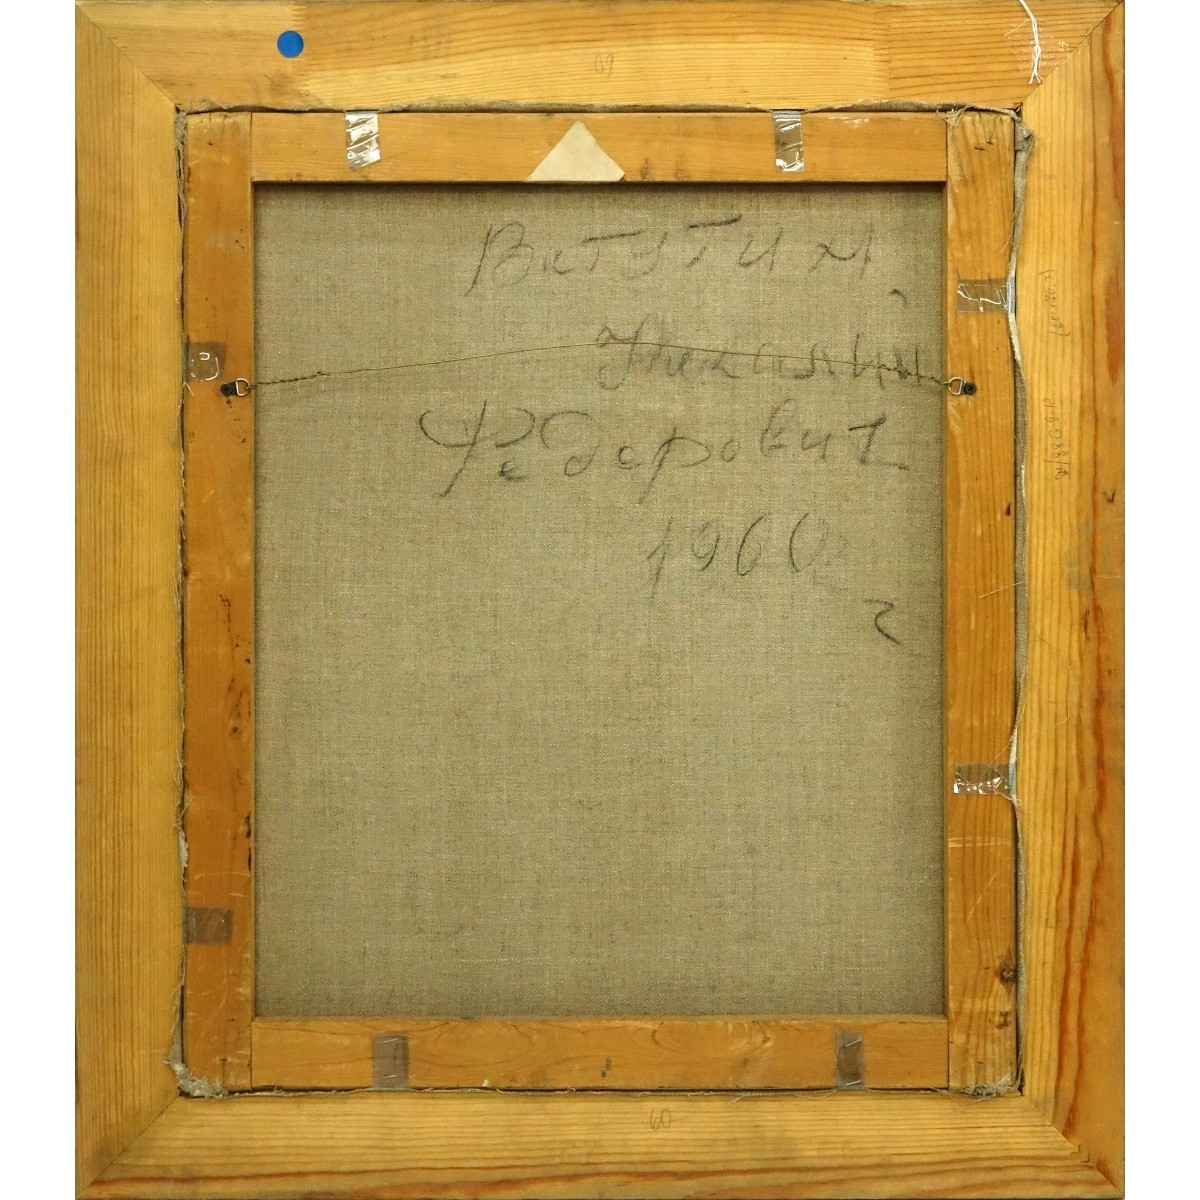 69
Ватутин
Николай
Федорович
1960
г
60